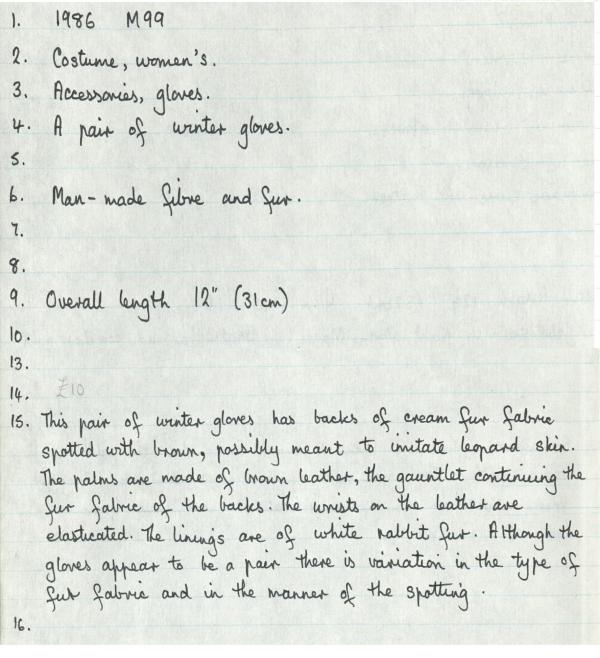 1. 1986 M99
2. Costume, women's.
3. Accessories, gloves.
4. A pair of winter gloves.
5.
6. Man-made fibre and fur.
7.
8.
9. Overall length 12" (31cm)
10.
13.
14. £10
15. This pair of winter gloves has backs of cream fur fabric
spotted with brown, possibly meant to imitate leopard skin.
The palms are made of brown leather, the gauntlet continuing the
fur fabric of the backs. The wrists on the leather are
elasticated. The linings are of white rabbit fur. Although the
gloves appear to be a pair there is variation in the type of
fur fabric and in the manner of the spotting.
16.